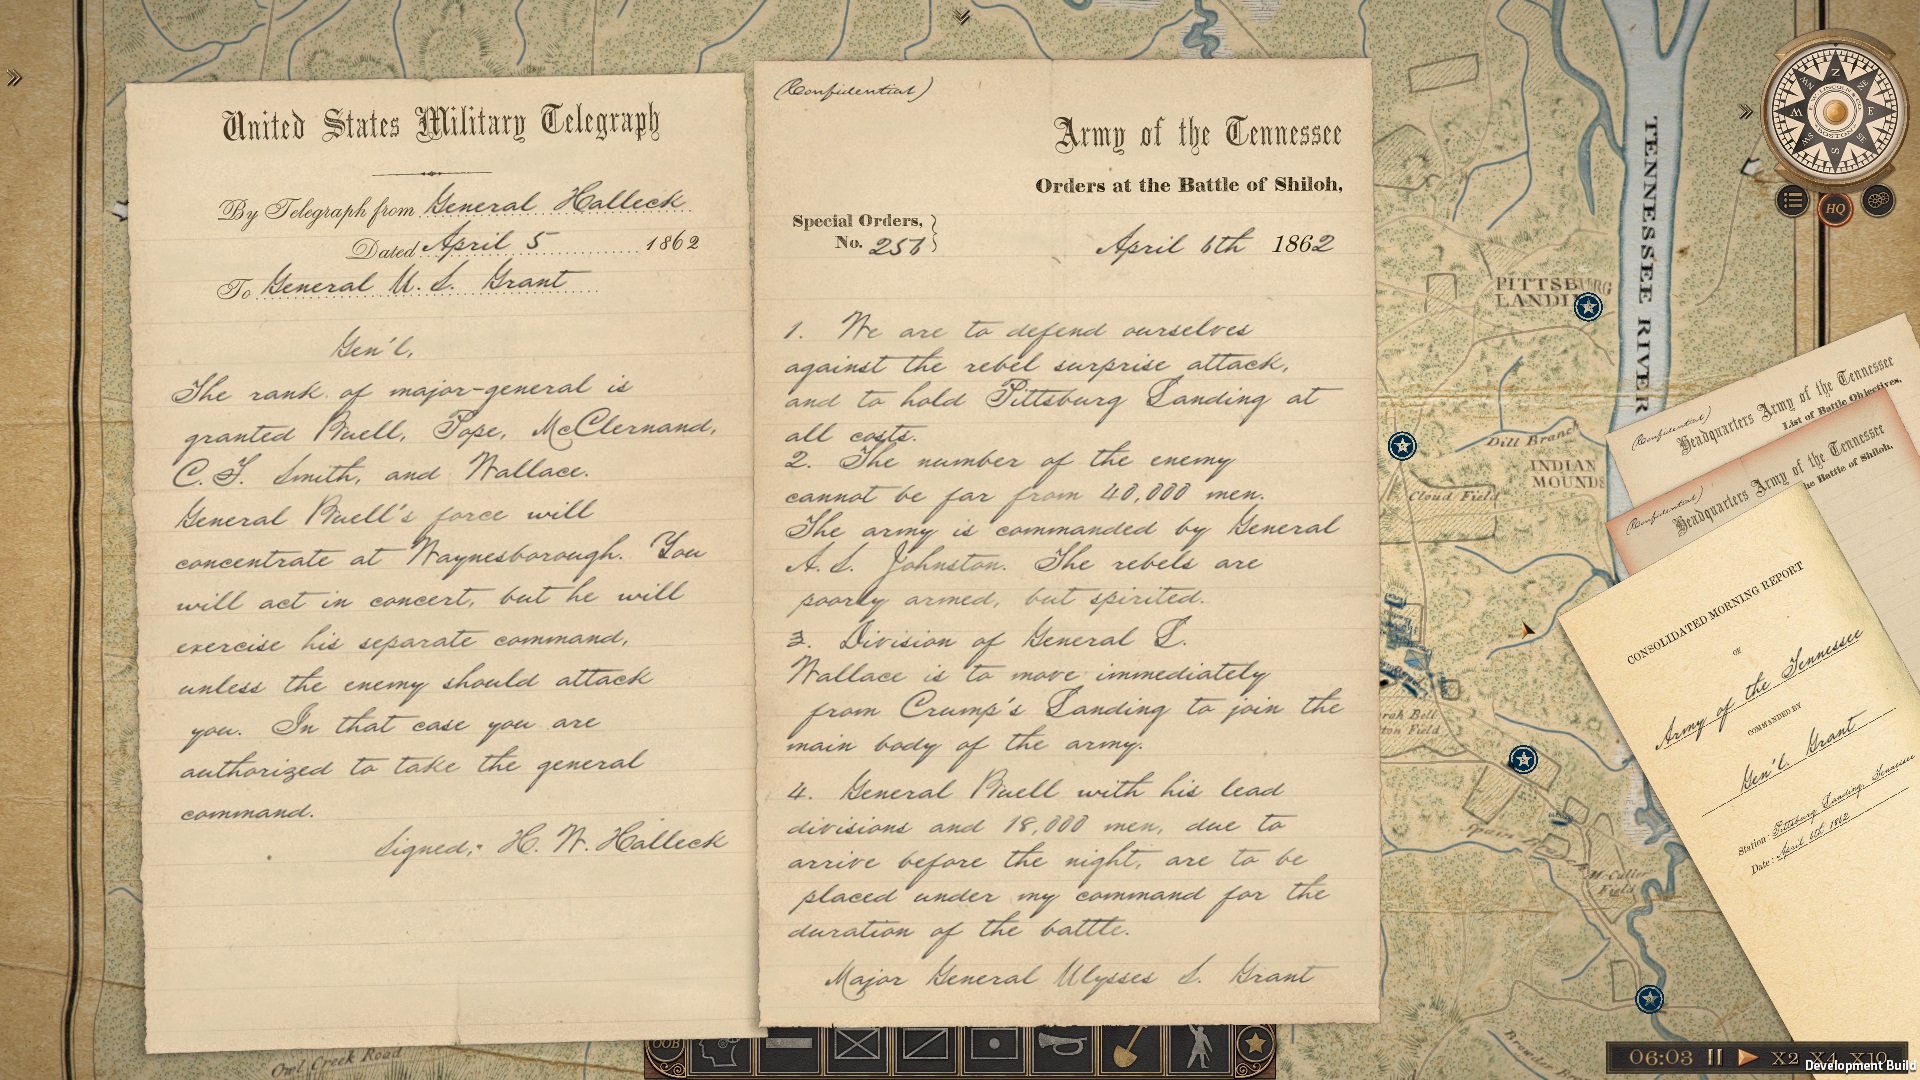 United States Military Telegraph
By Telegraph from General Halleck
Dated April 5 1862
To General U. S. Grant
Gen'l,
The rank of major-general is
granted Buell, Pope, McClernand,
C. F. Smith, and Wallace.
General Buell's force will
concentrate at Waynesborough. You
will act in concert, but he will
exercise his separate command,
unless the enemy should attack
you. In that case you are
authorized to take the general
command.
Signed:- H. W. Halleck
(Confidential)
Army of the Tennessee
Orders at the Battle of Shiloh,
Special Orders,
No. 256
April 6th 1862
1. We are to defend ourselves
against the rebel surprise attack,
and to hold Pittsburg Landing at
all costs.
2. The number of the enemy
cannot be far from 40,000 men.
The army is commanded by General
A. S. Johnston. The rebels are
poorly armed, but spirited.
3. Division of General L.
Wallace is to move immediately
from Crump's Landing to join the
main body of the army.
4. General Buell with his lead
divisions and 18,000 men, due to
arrive before the night, are to be
placed under my command for the
duration of the battle.
Major General Ulysses S. Grant
TENNESSEE RIVER
PITTSBURG
LANDING
Dill Branch
INDIAN
MOUNDS
Cloud Field
Bell
Field
Spain
Field
Owl Creek Road
HQ
(Confidential)
Headquarters Army of the Tennessee
List of Battle Objectives,
(Confidential)
Headquarters Army of the Tennessee
the Battle of Shiloh,
CONSOLIDATED MORNING REPORT
OF
Army of the Tennessee
COMMANDED BY
Gen'l. Grant
Station: Pittsburg Landing, Tennessee
Date: April 6th 1862
OOB
06:03 X2 X4 X10
Development Build